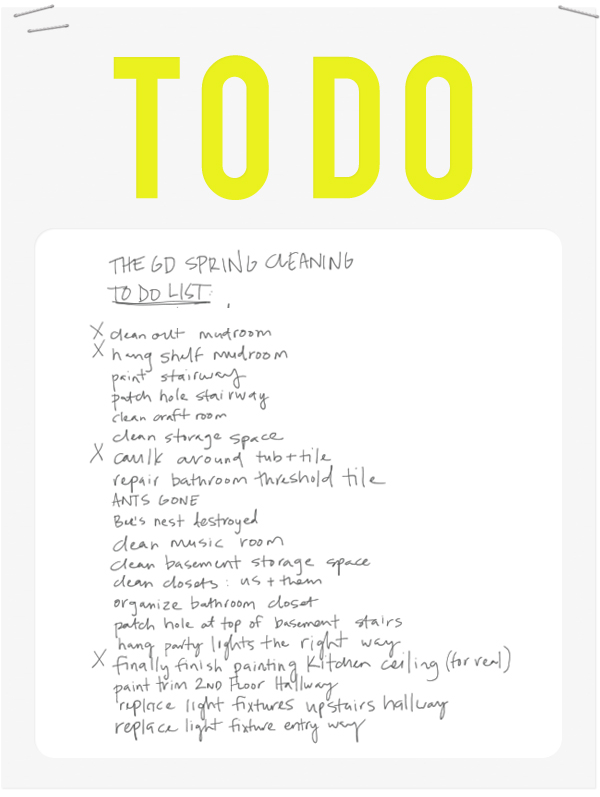 TO DO
THE GD SPRING CLEANING
TO DO LIST:
X clean out mudroom
X hang shelf mudroom
paint stairway
patch hole stairway
clean craft room
clean storage space
X caulk around tub + tile
repair bathroom threshold tile
ANTS GONE
Bee's nest destroyed
clean music room
clean basement storage space
clean closets: us + them
organize bathroom closet
patch hole at top of basement stairs
hang party lights the right way
X finally finish painting kitchen ceiling (for real)
paint trim 2ND Floor Hallway
replace light fixtures upstairs hallway
replace light fixture entry way